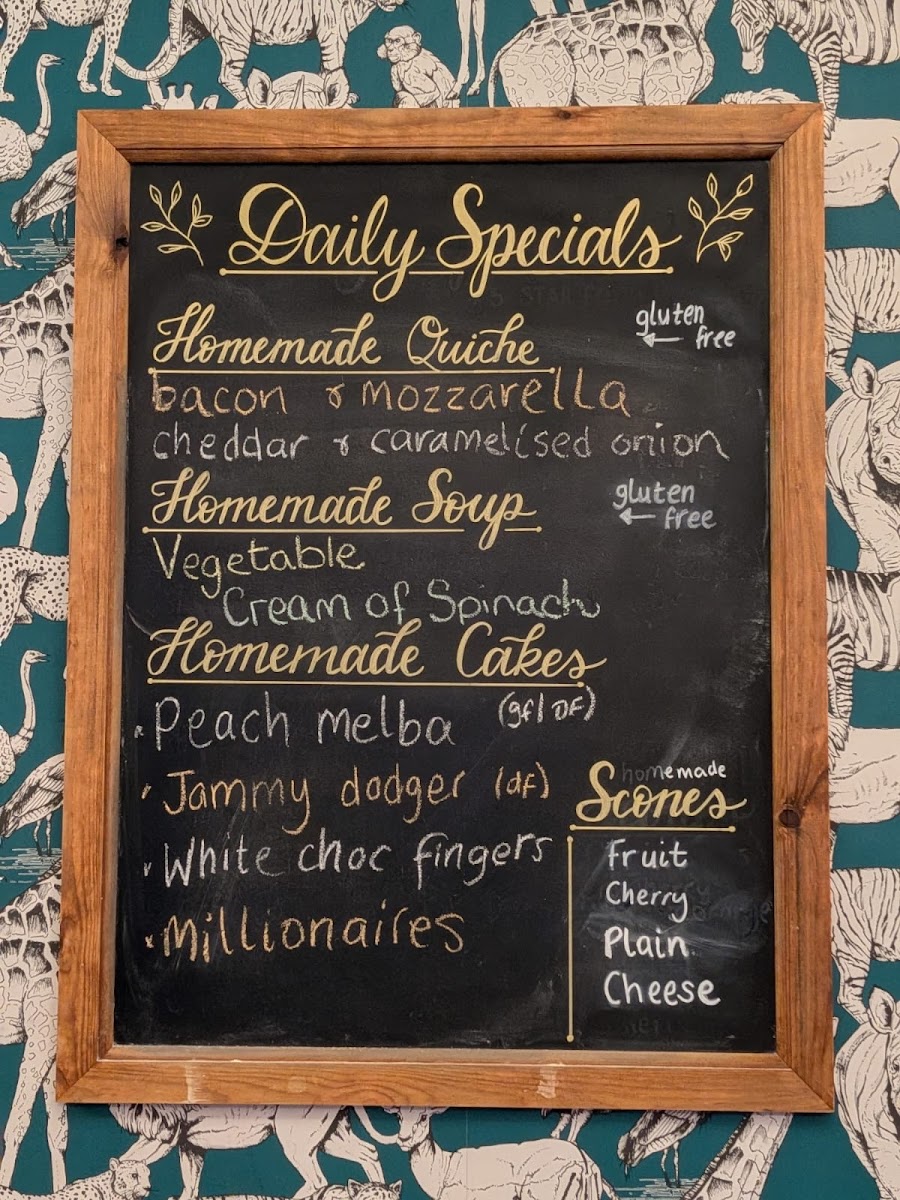 Daily Specials
Homemade Quiche
gluten
← free
bacon & mozzarella
cheddar & caramelised onion
Homemade Soup
gluten
← free
Vegetable
Cream of Spinach
Homemade Cakes
• Peach Melba (gf/DF)
• Jammy dodger (df)
• White choc fingers
• Millionaires
homemade
Scones
Fruit
Cherry
Plain
Cheese